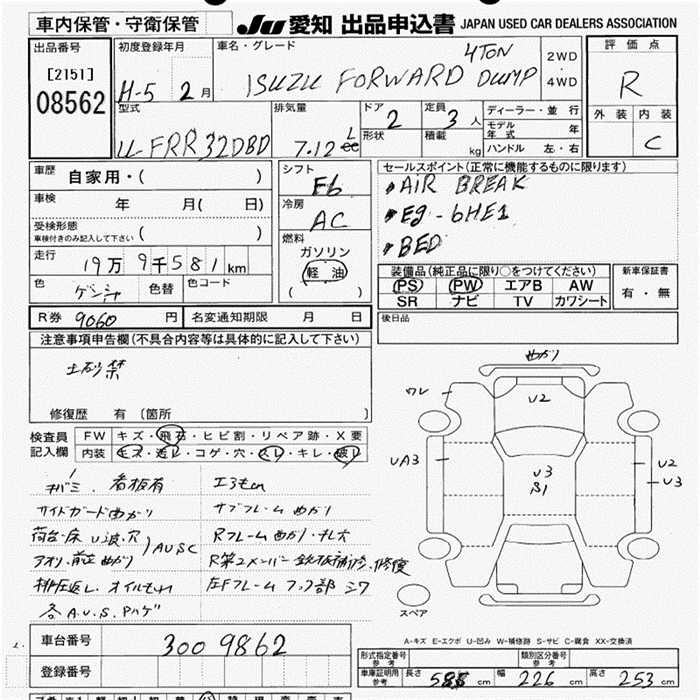 車内保管・守衛保管
JU 愛知 出品申込書 JAPAN USED CAR DEALERS ASSOCIATION
出品番号
[2151]
08562
初度登録年月
H-5 2月
車名・グレード
4TON
ISUZU FORWARD DUMP
2WD
・
4WD
評価点
R
外装 内装
C
型式
U-FRR32DBD
排気量
7.12 L cc
ドア
2
形状
定員
3人
積載
kg
ディーラー・並行
モデル年式 年
ハンドル 左・右
車歴 自家用・( )
車検 年 月( 日)
受検形態
車検付きのみ記入して下さい ( )
走行 19万9千581km
色 ゲンシャ 色替 色コード
シフト
F6
冷房
AC
燃料
ガソリン
軽油
( )
セールスポイント(正常に機能するものに限ります)
AIR BREAK
Eg-6HE1
BED
装備品(純正品に限り○をつけてください)
PS PW エアB AW
SR ナビ TV カワシート
新車保証書
有・無
後日品
R券 9060円 名変通知期限 月 日
注意事項申告欄(不具合内容等は具体的に記入して下さい)
土砂禁
修復歴 有 〔箇所 〕
検査員
記入欄
FW キズ・飛石・ヒビ割・リペア跡・X要
内装 キズ・返し・コゲ・穴・スレ・キレ・破レ
キバミ. 看板有
サイドガードめがり
荷台床U波.穴
アオリ.前立めがり
AUSC
排圧返し.オイルもれ
各A.U.S.Pハゲ
エアもれ
サブフレームめがり
Rフレームめがり・サレ大
R第2メンバー鉄板補修.修復
左Fフレームフック部シワ
めがり
ワレ
U2
UA3
U3
S1
U2
U3
スペア
A-キズ E-エクボ U-凹み W-補修跡 S-サビ C-腐食 XX-交換済
車台番号 3009862
登録番号
形式指定番号
参考
類別区分番号
参考
車庫証明用
参考
長さ 585cm 幅 226cm 高さ 253cm